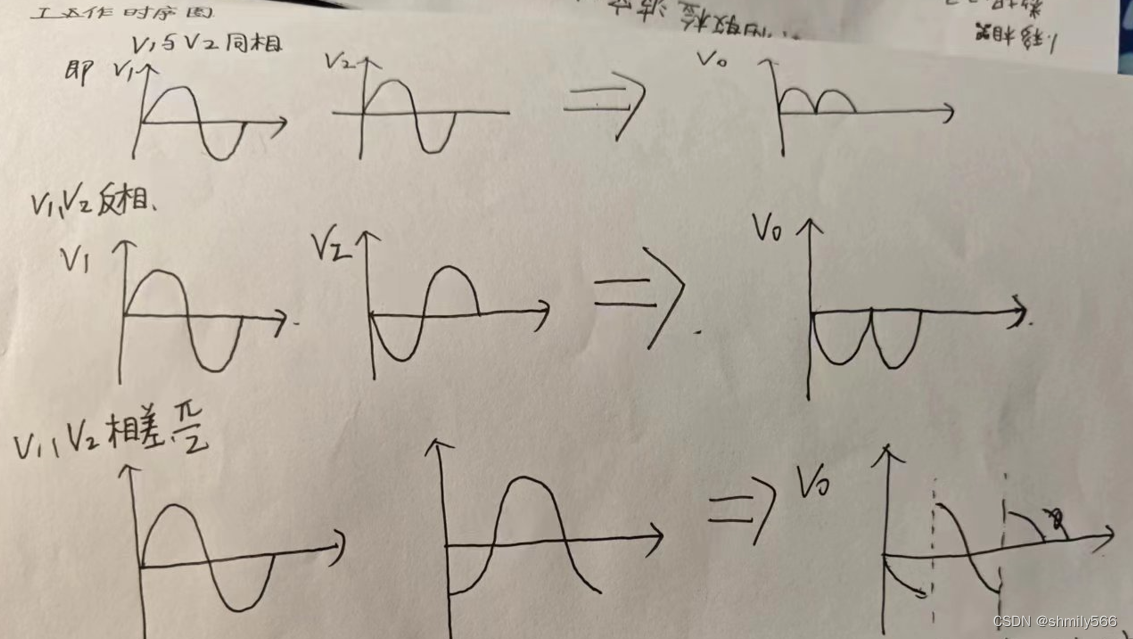 工作时序图
V1与V2同相
即 V1 V2 V0
V1,V2反相、
V1 V2 V0
V1,V2相差π/2
V0
CSDN @shmily566
1.移相